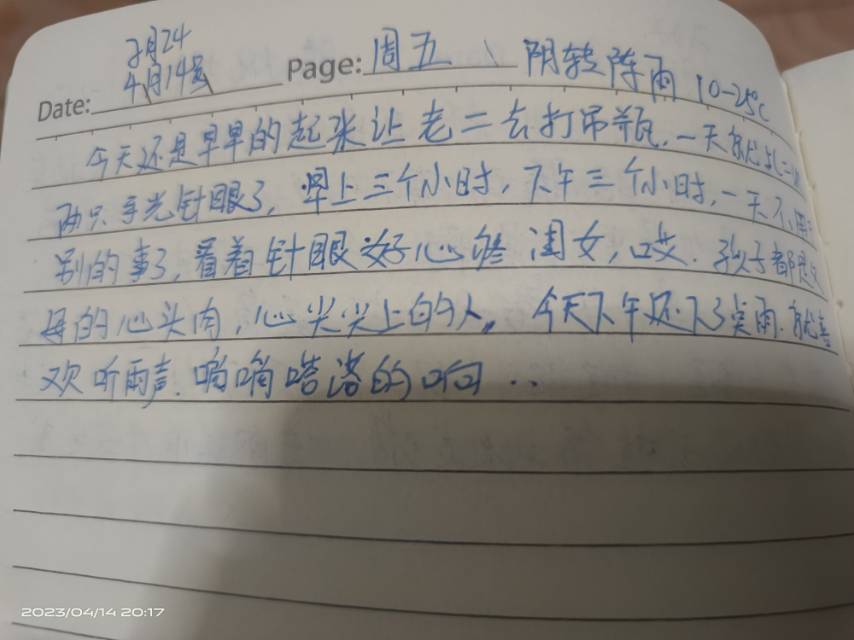 2月24
4月14号
Date:
Page: 周五 阴转阵雨 10-25℃
今天还是早早的起来让老二去打吊瓶,一天就
两只手光针眼了,早上三个小时,下午三个小时,一天不
别的事了,看着针眼好心疼闺女,哎.孩子都是父
母的心头肉,心尖尖上的人。今天下午还下了点雨.就喜
欢听雨声.嘀嘀嗒嗒的响..
2023/04/14 20:17